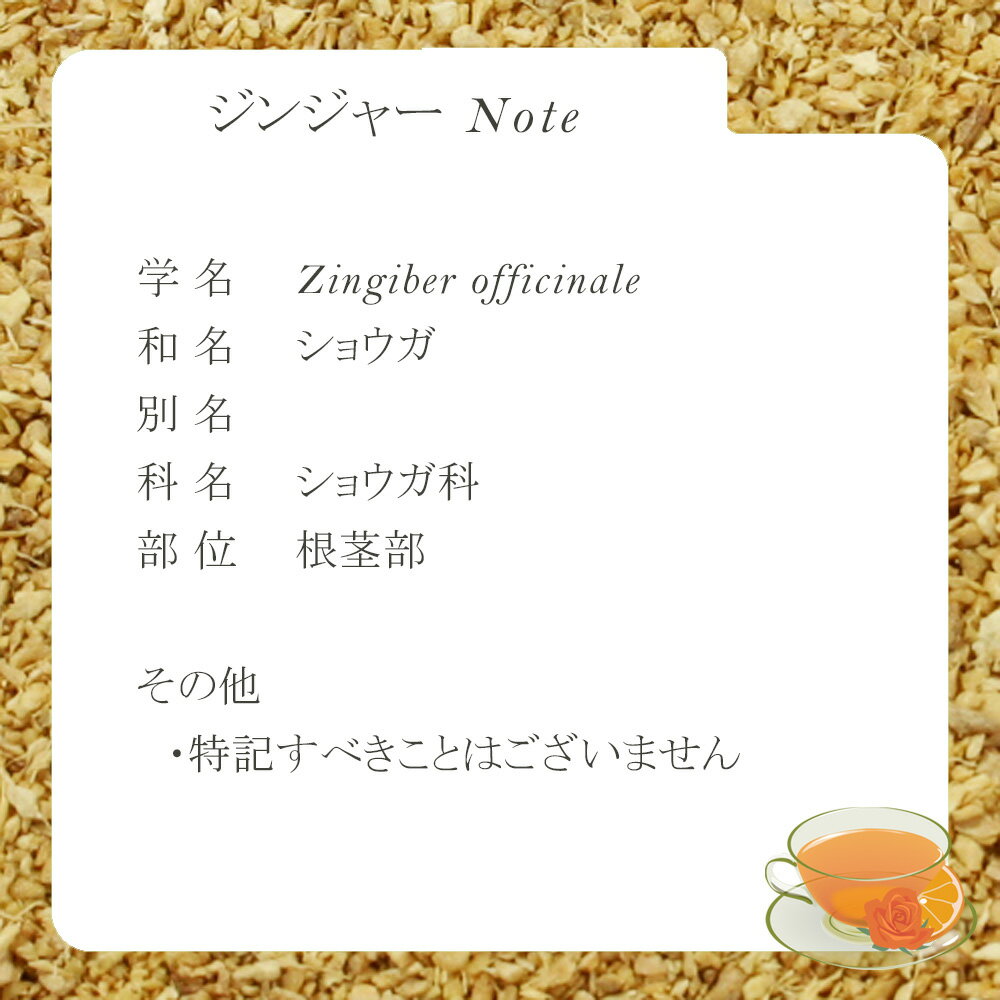 ジンジャー Note
学名 Zingiber officinale
和名 ショウガ
別名
科名 ショウガ科
部位 根茎部
その他
・特記すべきことはございません